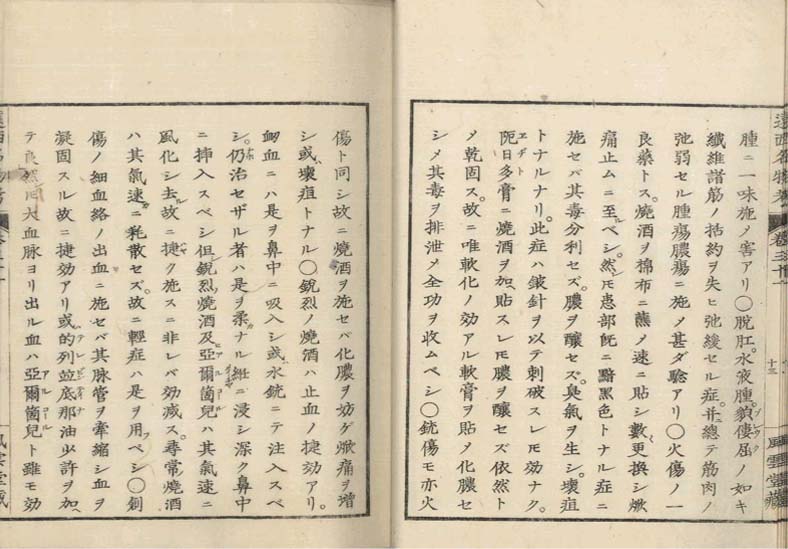 遠西名物考 卷三十一 十三 風雲堂藏
腫ニ一味施ノ害アリ〇脱肛。水液腫。貌僂屈ノ如キ
纎維諸筋ノ括約ヲ失ヒ弛緩セル症。并ニ總テ筋肉ノ
弛弱セル腫瘍膿瘍ニ施メ甚ダ驗アリ〇火傷ノ一
良藥トス。燒酒ヲ棉布ニ蘸メ速ニ貼シ數更換シ焮
痛止ムニ至ルベシ。然𪜈患部既ニ黯黑色トナル症ニ
施セバ其毒分利セズ。膿ヲ醸セズ。臭氣ヲ生シ。壞疽
トナルナリ。此症ハ鈹針ヲ以テ刺破スレ𪜈効ナク。
阨日多膏ニ燒酒ヲ加ヘ貼スレ𪜈膿ヲ醸セズ依然ト
メ乾固ス。故ニ唯軟化ノ効アル軟膏ヲ貼メ化膿セ
シメ其毒ヲ排泄メ全功ヲ收ムベシ〇銃傷モ亦火
傷ト同シ故ニ燒酒ヲ施セバ化膿ヲ妨ゲ焮痛ヲ增
シ或ハ壞疽トナル〇銳烈ノ燒酒ハ止血ノ捷効アリ。
衂血ニハ是ヲ鼻中ニ吸入シ或ハ水銃ニテ注入スベ
シ。仍治セザル者ハ是ヲ柔ナル絍ニ浸シ深ク鼻中
ニ挿入スベシ但銳烈燒酒及亞爾箇兒ハ其氣速ニ
風化シ去ル故ニ捷ク施スニ非レバ効减ス。尋常燒酒
ハ其氣速ニ耗散セズ。故ニ輕症ハ是ヲ用フベシ〇創
傷ノ細血絡ノ出血ニ施セバ其脉管ヲ牽縮シ血ヲ
凝固スル故ニ捷効アリ或ハ的列並底那油少許ヲ加ヘ
テ良然𪜈大血脉ヨリ出ル血ハ亞爾箇兒ト雖モ効